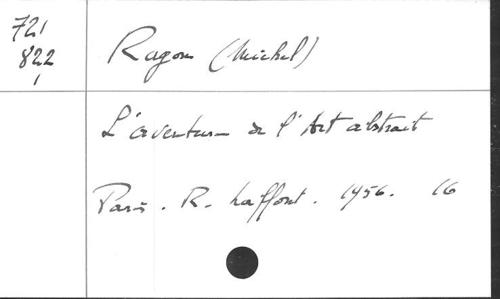 721
822
Ragon (Michel)
L'aventure de l'Art abstrait
Paris. R. Laffont. 1956. 16